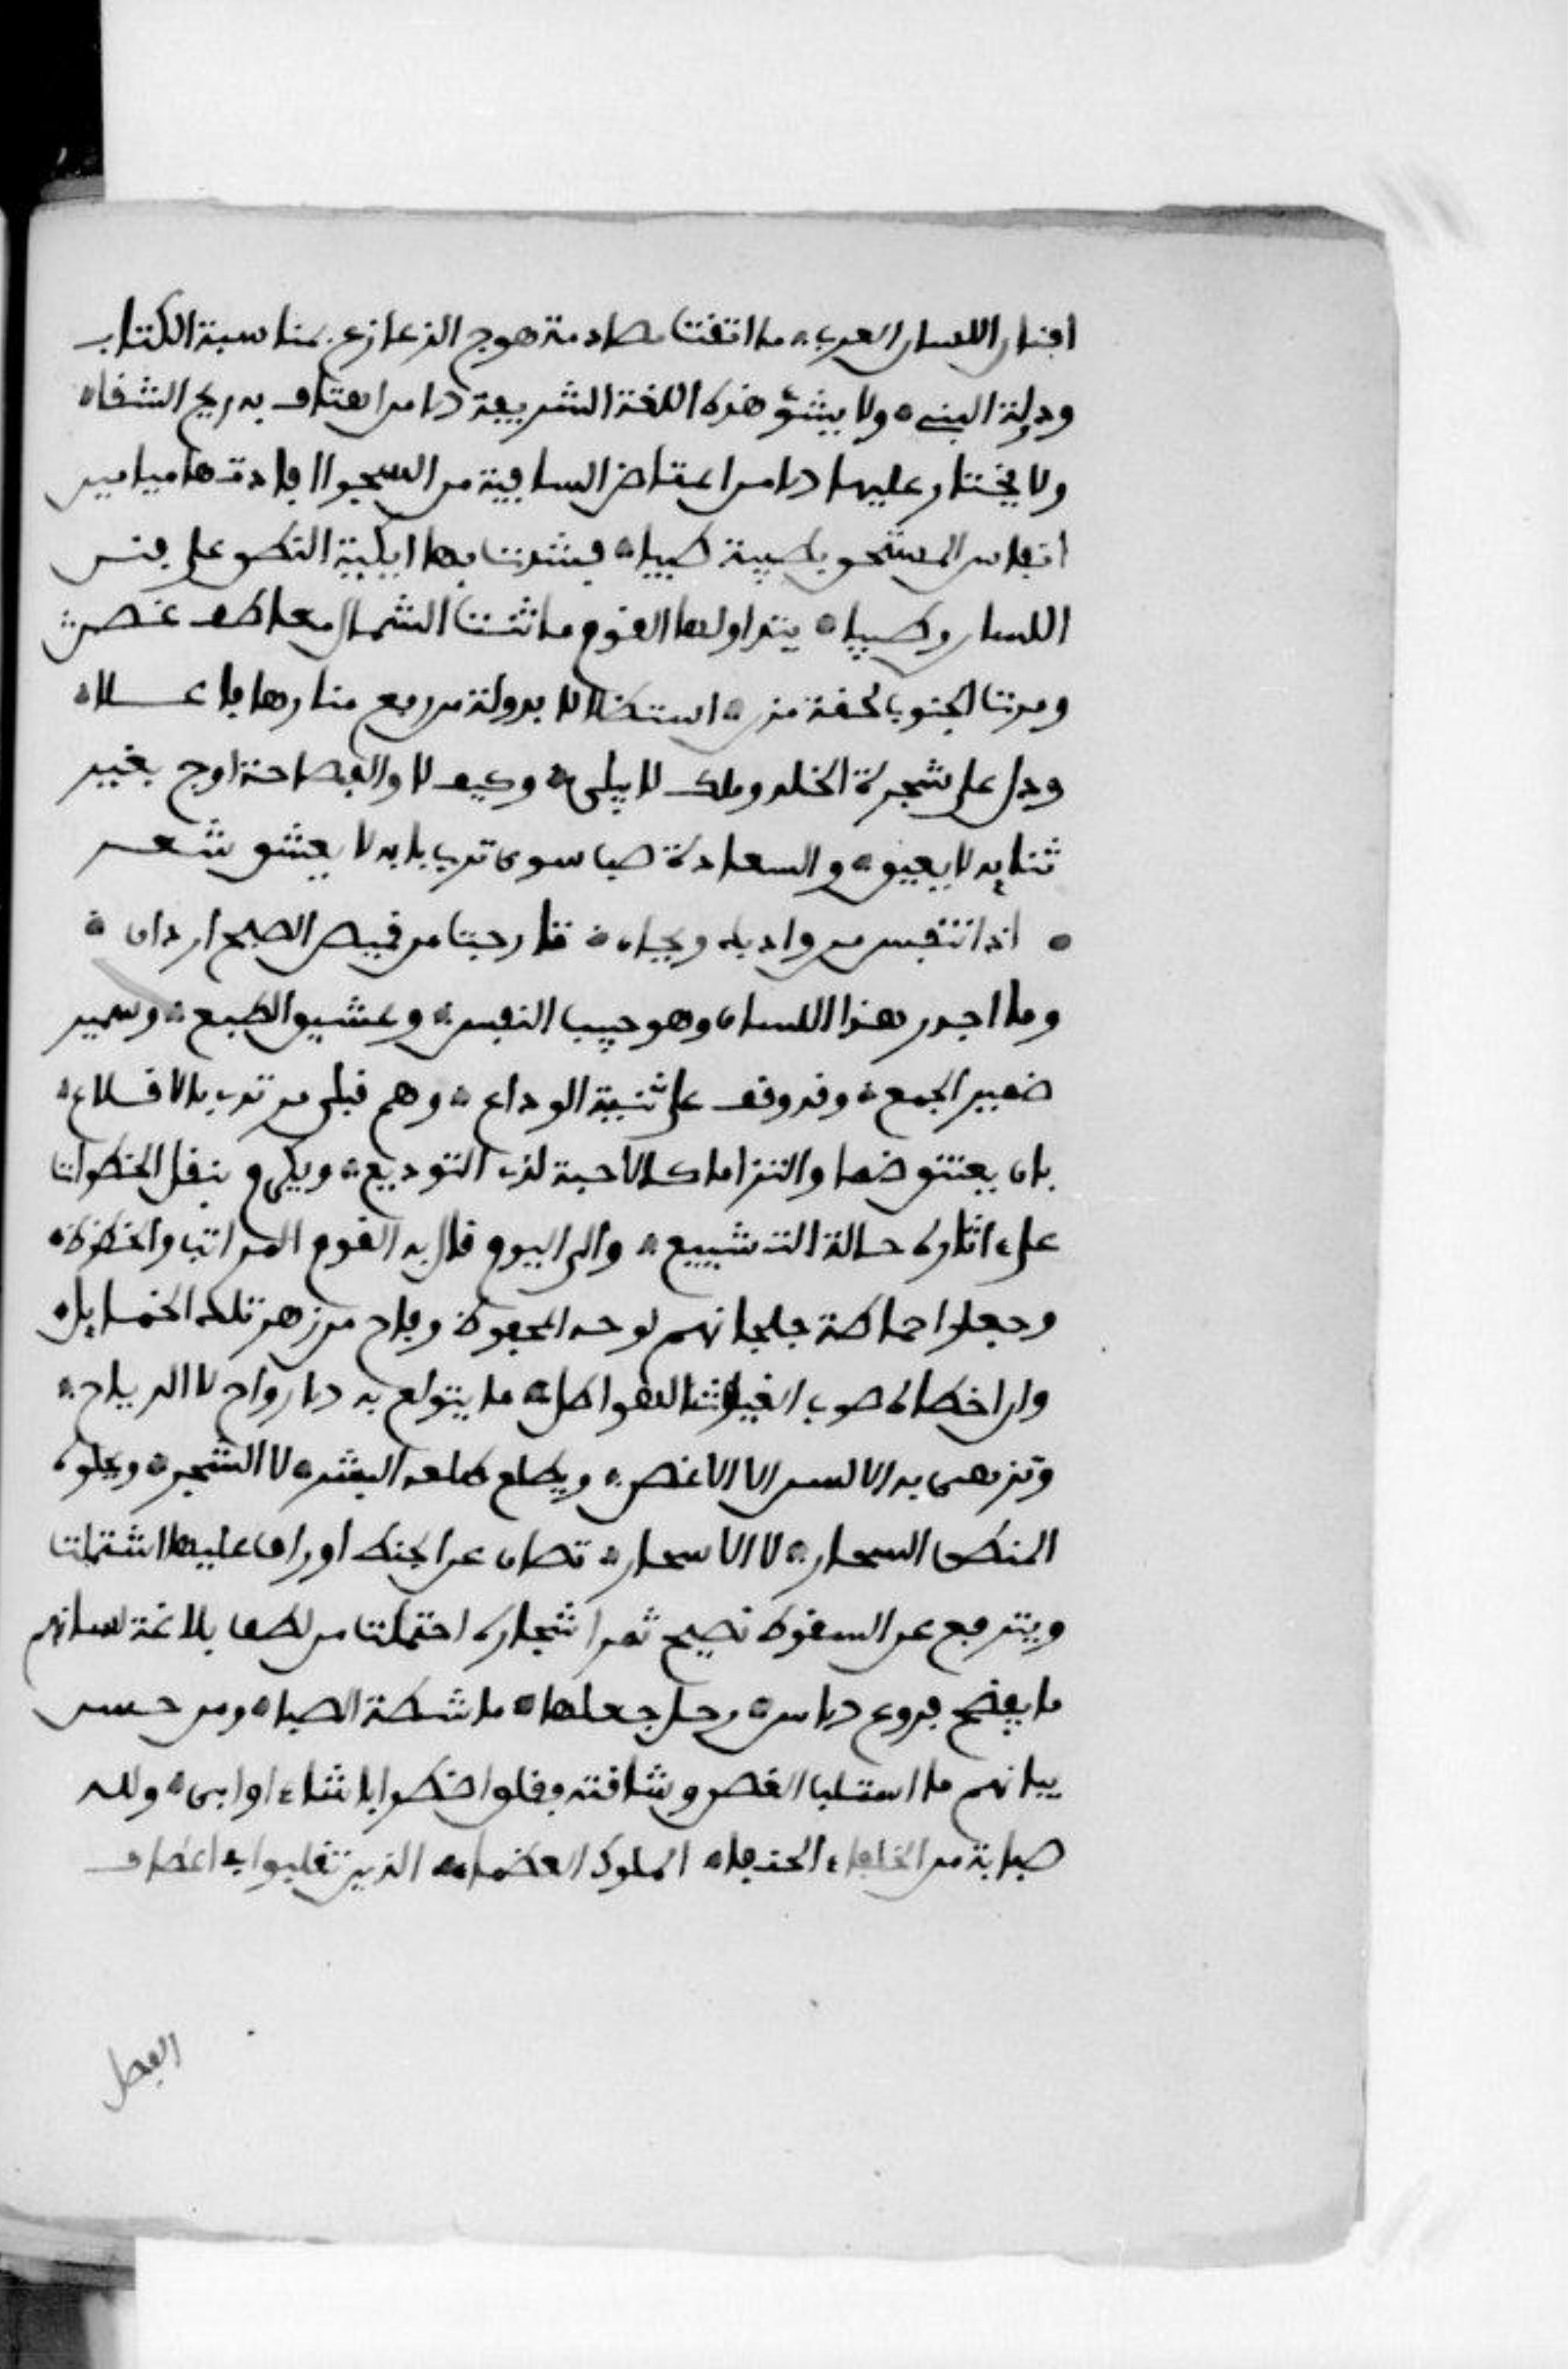 افنان اللسان العربي ما اتقت مصادمة هوج الزعازع بمناسبة الكتاب
ودولة النبي ولا يشنؤ هذه اللغة الشريفة الا من اهتاف به ريح الشقاء
ولا يختار عليها الا من اعتاض السافية من السجواء افادتها ميامين
انفاس المستجن بطيبة طيبا فشدت بها ايكية النطق على فنن
اللسان رطيبا يتداولها القوم ما ثنت الشمال معاطف غصن
ومرت الجنوب لقحة مزن استظلالا بدولة من رفع منارها فاعلا
ودل على شجرة الخلد وملك لا يبلى وكيف لا والفصاحة ارج بغير
ثنايه لا يعبق والسعادة صبا سوى ترب بابه لا يعشق شعر
اذا تنفس من واديك ريحان تارجت من قميص الصبح اردان
وما اجدر هذا اللسان وهو حبيب النفس وعشيق الطبع وسمير
ضمير الجمع وقد وقف على ثنية الوداع وهم قبلي مزنه بالاقلاع
بان يعتنق ضما والتزاما كالاحبة لدى التوديع ويكرم بنقل الخطوات
على اثاره حالة التشييع والى اليوم نال به القوم المراتب والحظوظ
وجعلوا حماطة جلجلانهم لوحه المحفوظ وفاح من زهر تلك الخمايل
وان اخطاه صوب الغيوث الهواطل ما يتولع به الارواح لا الرياح
وتزهى به الالسن لا الاغصن ويطلع طلعه البشر لا الشجر ويجلوه
المنطق السحار لا الاسحار تصان عن الخبط اوراق عليها اشتملت
ويترفع عن السقوط نضيج ثمر اشجاره احتملت من لطف بلاغة لسانهم
ما يفضح فروع الاس رجل جعلها ماشطة الصبا ومن حسن
بيانهم ما استلب الغصن رشاقته فقلق اضطرابا شاء او ابى ولله
صبابة من الخلفاء الحنفاء الملوك العظماء الذين تقلبوا في اعطاف
الفضل